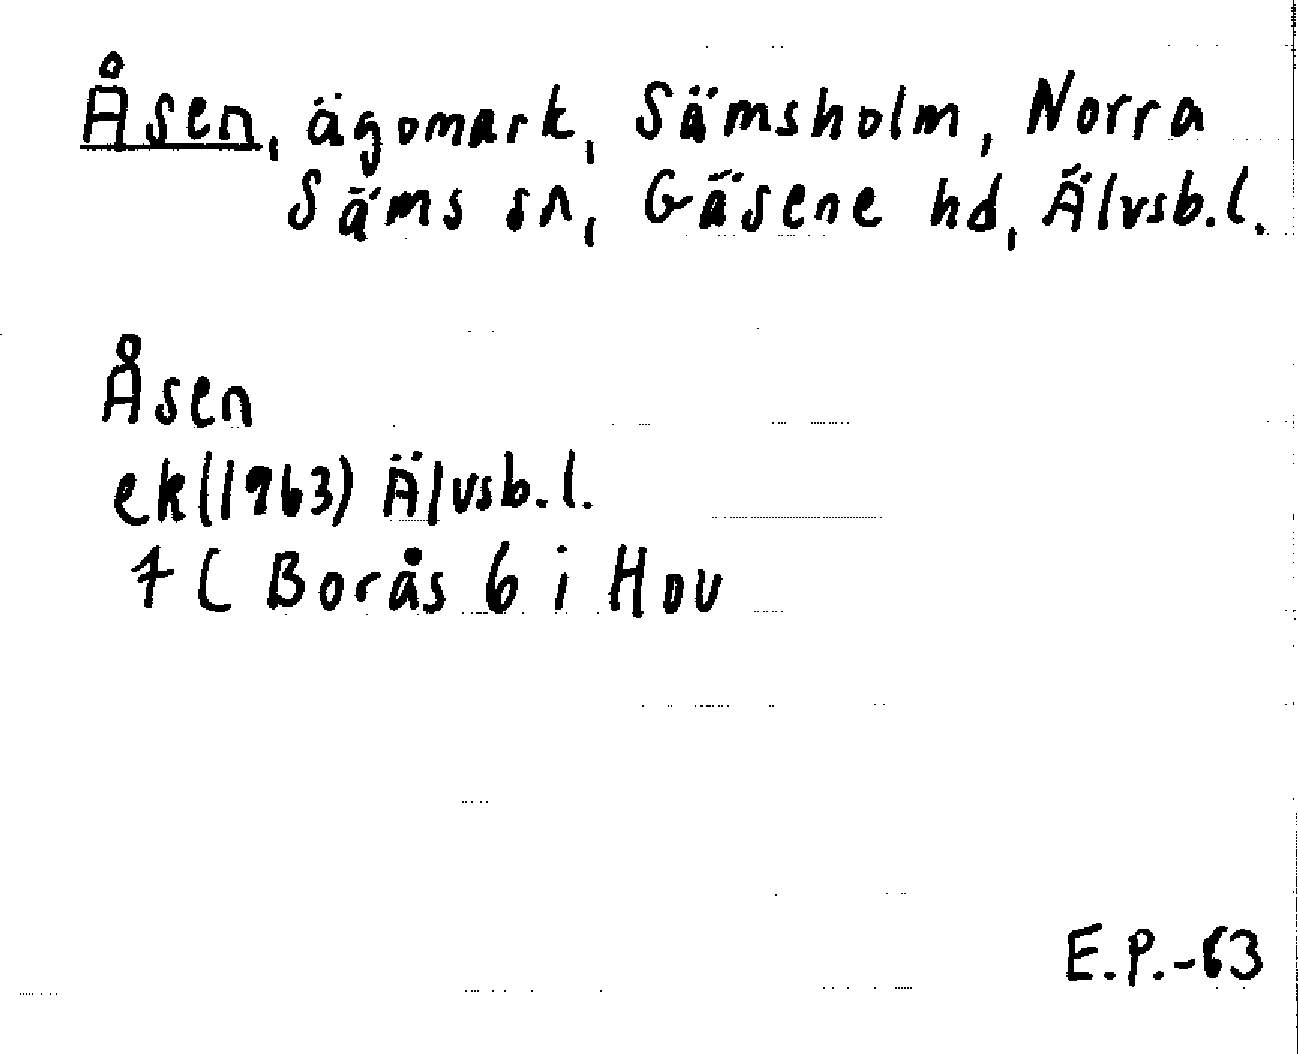 Åsen, ägomark, Sämsholm, Norra
Säms sn, Gäsene hd, Älvsb.l.
Åsen
ek(1963) Älvsb.l.
7C Borås 6 i Hov
E.P.-63